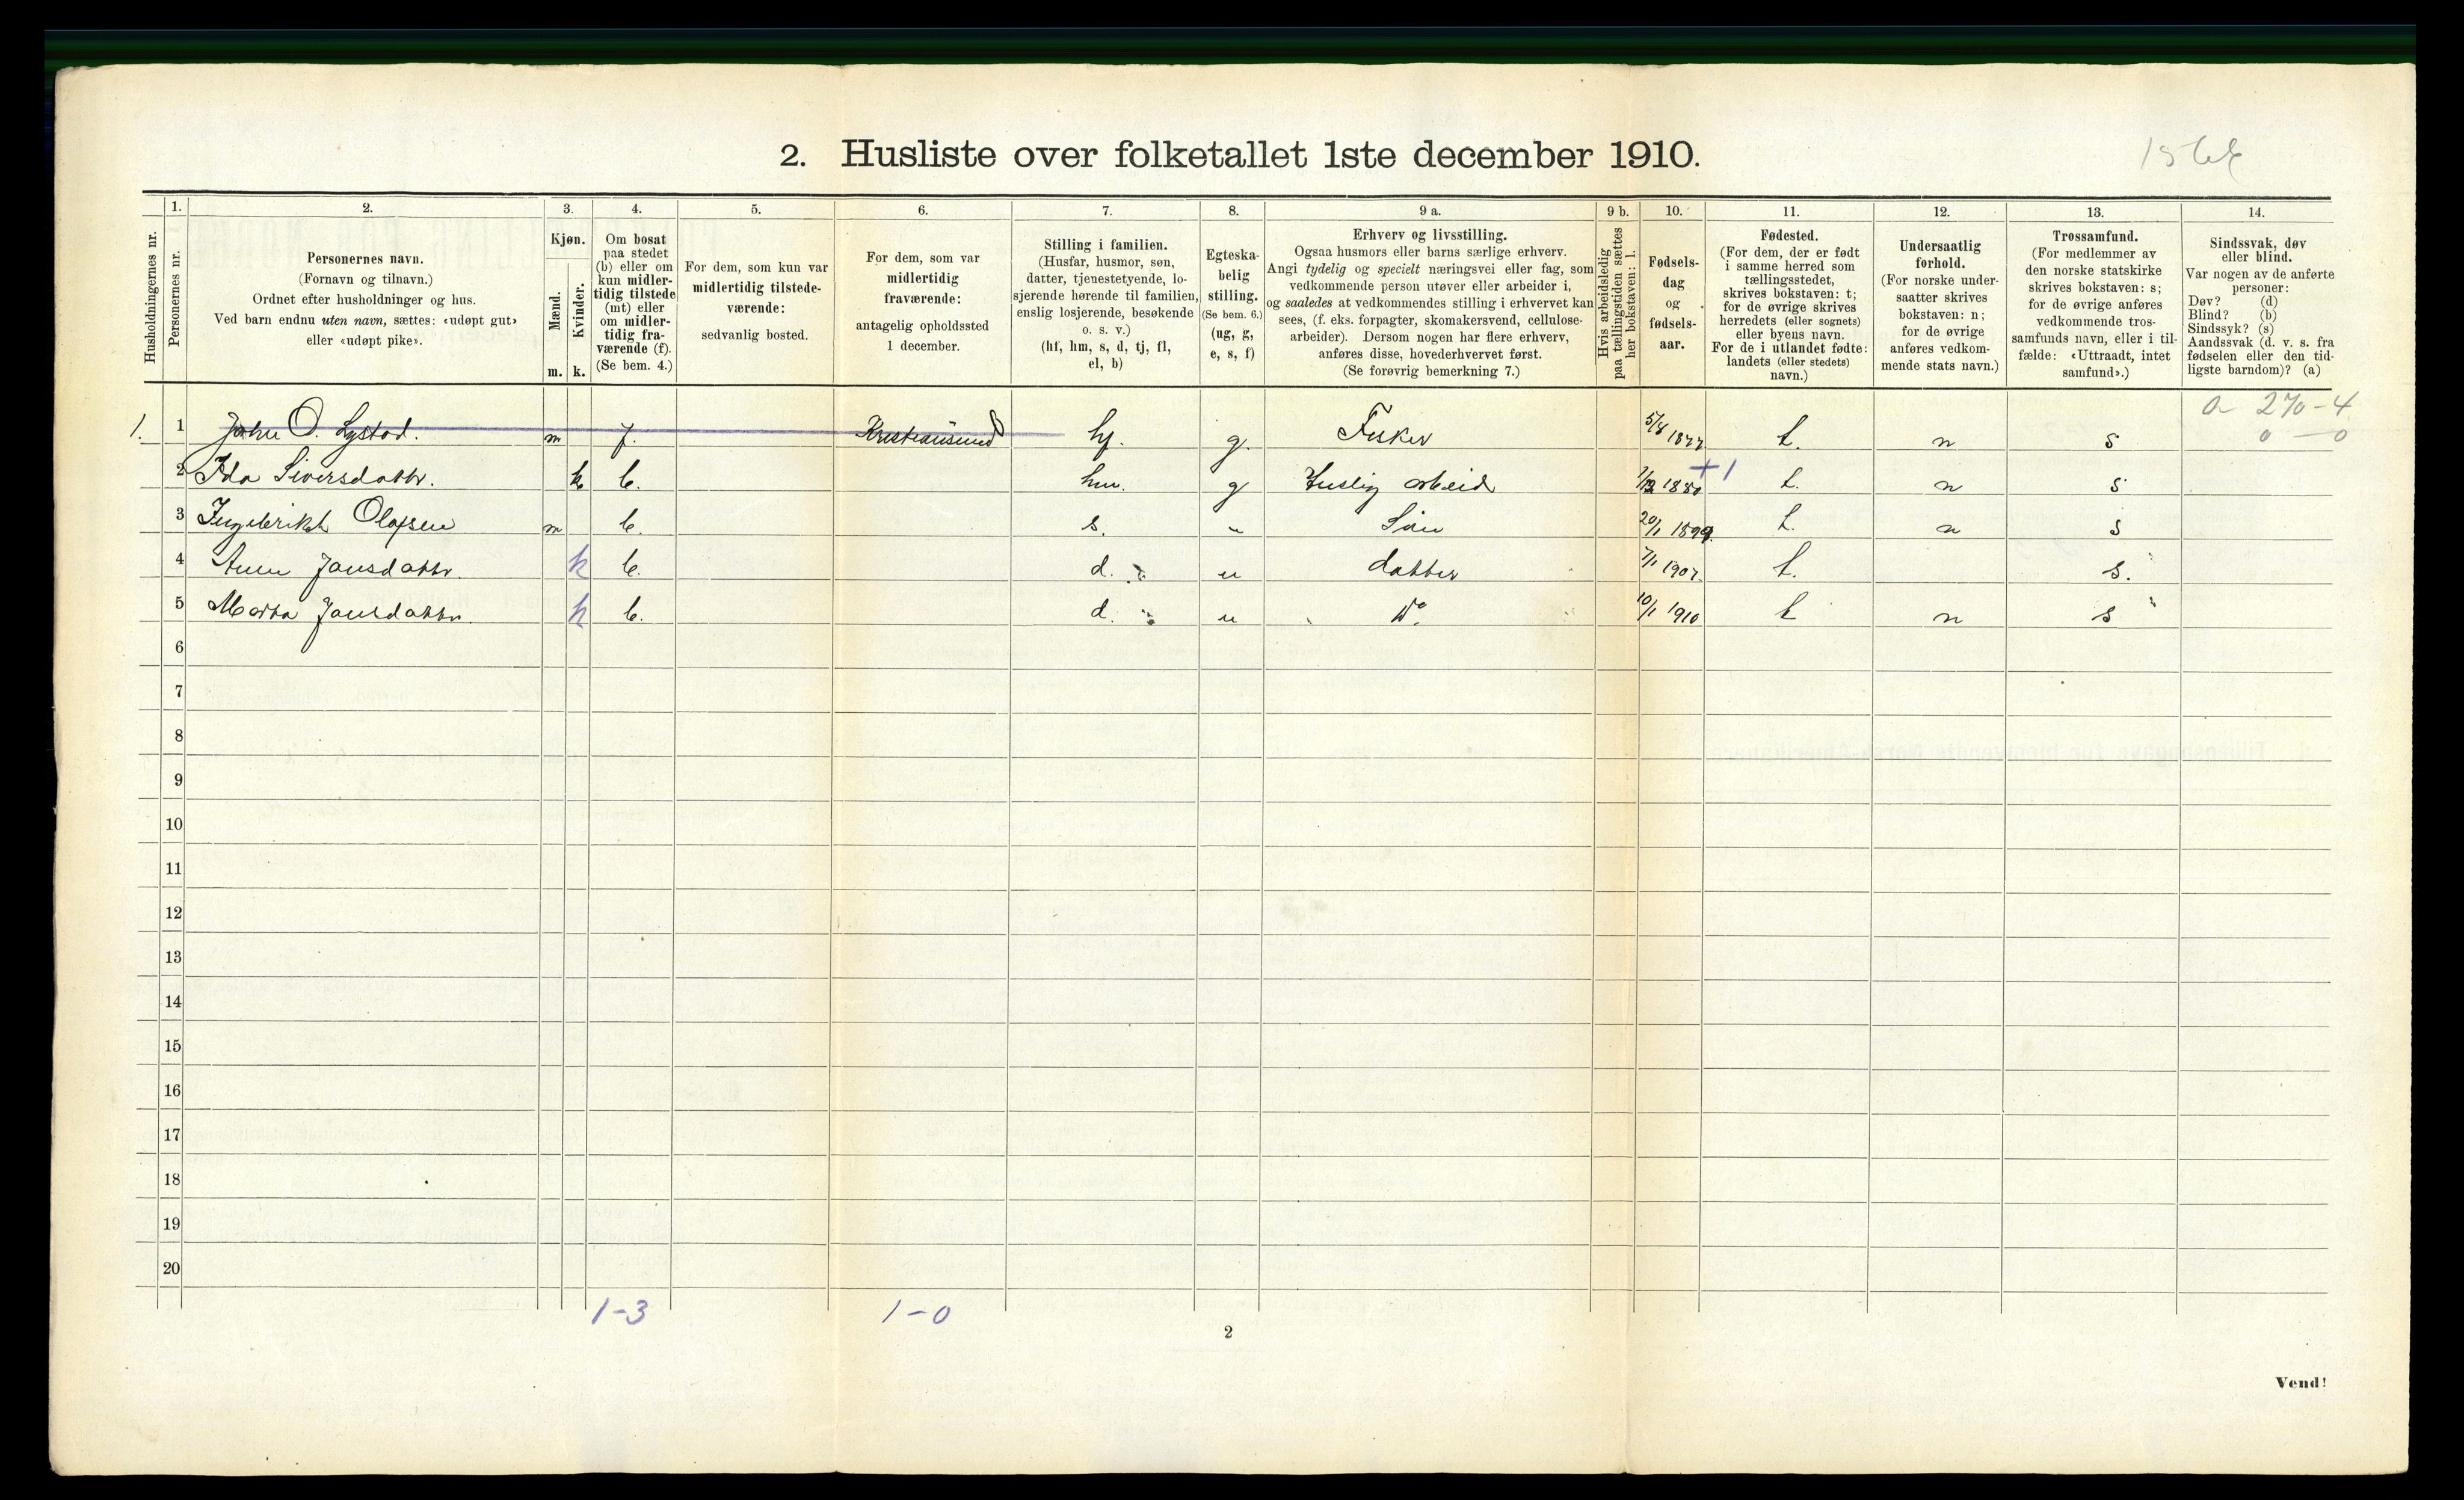 2. Husliste over folketallet 1ste december 1910.
1. 2. 3. 4. 5. 6. 7. 8. 9 a. 9 b. 10. 11. 12. 13. 14.
Husholdningernes nr.
Personernes nr.
Personernes navn.
(Fornavn og tilnavn.)
Ordnet efter husholdninger og hus.
Ved barn endnu uten navn, sættes: «udøpt gut»
eller «udøpt pike».
Kjøn.
Mænd.
Kvinder.
m. k.
Om bosat
paa stedet
(b) eller om
kun midler-
tidig tilstede
(mt) eller
om midler-
tidig fra-
værende (f).
(Se bem. 4.)
For dem, som kun var
midlertidig tilstede-
værende:
sedvanlig bosted.
For dem, som var
midlertidig
fraværende:
antagelig opholdssted
1 december.
Stilling i familien.
(Husfar, husmor, søn,
datter, tjenestetyende, lo-
sjerende hørende til familien,
enslig losjerende, besøkende
o. s. v.)
(hf, hm, s, d, tj, fl,
el, b)
Egteska-
belig
stilling.
(Se bem. 6.)
(ug, g,
e, s, f)
Erhverv og livsstilling.
Ogsaa husmors eller barns særlige erhverv.
Angi tydelig og specielt næringsvei eller fag, som
vedkommende person utøver eller arbeider i,
og saaledes at vedkommendes stilling i erhvervet kan
sees, (f. eks. forpagter, skomakersvend, cellulose-
arbeider). Dersom nogen har flere erhverv,
anføres disse, hovederhvervet først.
(Se forøvrig bemerkning 7.)
Hvis arbeidsledig
paa tællingstiden sættes
her bokstaven: l.
Fødsels-
dag
og
fødsels-
aar.
Fødested.
(For dem, der er født
i samme herred som
tællingsstedet,
skrives bokstaven: t;
for de øvrige skrives
herredets (eller sognets)
eller byens navn.
For de i utlandet fødte:
landets (eller stedets)
navn.)
Undersaatlig
forhold.
(For norske under-
saatter skrives
bokstaven: n;
for de øvrige
anføres vedkom-
mende stats navn.)
Trossamfund.
(For medlemmer av
den norske statskirke
skrives bokstaven: s;
for de øvrige anføres
vedkommende tros-
samfunds navn, eller i til-
fælde: «Uttraadt, intet
samfund».)
Sindssvak, døv
eller blind.
Var nogen av de anførte
personer:
Døv? (d)
Blind? (b)
Sindssyk? (s)
Aandssvak (d. v. s. fra
fødselen eller den tid-
ligste barndom)? (a)
0 270-4
0 — 0
1. 1 John O. Lystad. m f. Kristiansund hf. g. Fisker 5/8 1877 t. n s
2 Ida Siversdattr. k b. hm. g Huslig arbeid 1880 +1 t. n s
3 Ingebrikt Olafsen m b. s. " Sön 20/1 1899 t. n s
4 Anna Jansdattr. k b. d. u datter 7/1 1907 t. s.
5 Marta Jansdattr. k b. d. u Do. 10/1 1910 t n s
6
7
8
9
10
11
12
13
14
15
16
17
18
19
20
1-3 1-0
2
Vend!